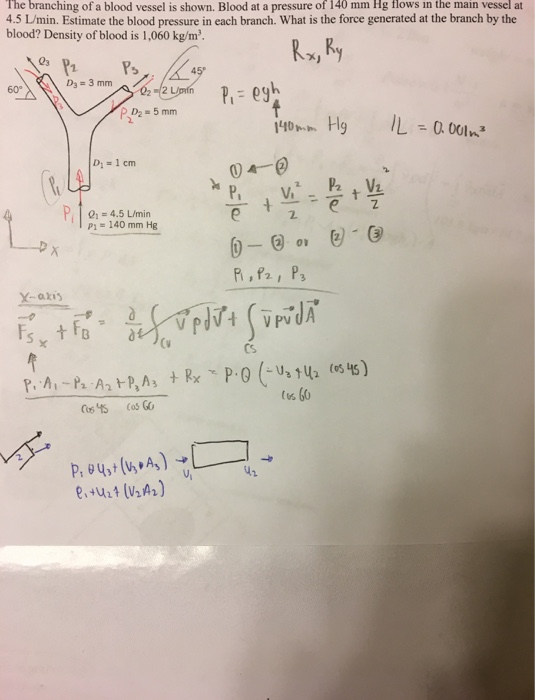 The branching of a blood vessel is shown. Blood at a pressure of 140 mm Hg flows in the main vessel at
4.5 L/min. Estimate the blood pressure in each branch. What is the force generated at the branch by the
blood? Density of blood is 1,060 kg/m³.
Rx, Ry
Q₃ P₂ P₃ 45°
D₃ = 3 mm
60°
Q₂ = 2 L/min
P₂ D₂ = 5 mm
P₁ = ρgh
140mm Hg 1L = 0.001m³
D₁ = 1 cm
P₁
P₁ Q₁ = 4.5 L/min
p₁ = 140 mm Hg
X
P₁/ρ + V₁²/2 = P₂/ρ + V₂²/2
① - ② or ② - ③
P₁, P₂, P₃
X-axis
Fsx + FB = ∂/∂t ∫cv v ρ dV + ∫cs v ρ v dA
P₁·A₁ - P₂·A₂ + P₃A₃ + Rx = ρ·Q (-U₃ + U₂ cos 45)
cos 45 cos 60 cos 60
2
U₁ U₂